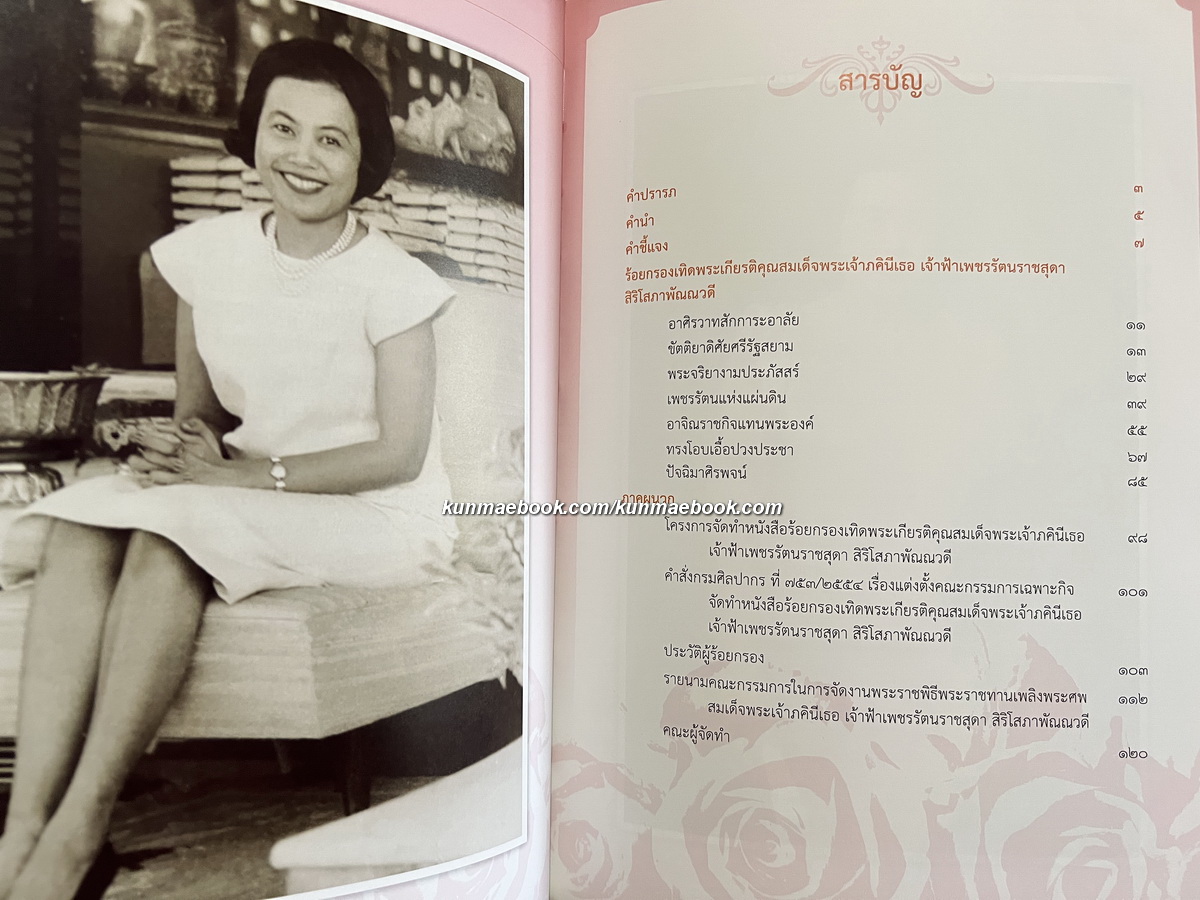 สารบัญ
คำปรารภ ๓
คำนำ ๕
คำชี้แจง ๗
ร้อยกรองเทิดพระเกียรติคุณสมเด็จพระเจ้าภคินีเธอ เจ้าฟ้าเพชรรัตนราชสุดา
สิริโสภาพัณณวดี
อาศิรวาทสักการะอาลัย ๑๑
ขัตติยาดิศัยศรีรัฐสยาม ๑๓
พระจริยางามประภัสสร์ ๒๙
เพชรรัตนแห่งแผ่นดิน ๓๙
อาจิณราชกิจแทนพระองค์ ๕๕
ทรงโอบเอื้อปวงประชา ๖๗
ปัจฉิมาศิรพจน์ ๘๕
ภาคผนวก
kunmaebook.com/kunmaebook.com
โครงการจัดทำหนังสือร้อยกรองเทิดพระเกียรติคุณสมเด็จพระเจ้าภคินีเธอ ๙๘
เจ้าฟ้าเพชรรัตนราชสุดา สิริโสภาพัณณวดี
คำสั่งกรมศิลปากร ที่ ๗๕๓/๒๕๕๔ เรื่องแต่งตั้งคณะกรรมการเฉพาะกิจ ๑๐๑
จัดทำหนังสือร้อยกรองเทิดพระเกียรติคุณสมเด็จพระเจ้าภคินีเธอ
เจ้าฟ้าเพชรรัตนราชสุดา สิริโสภาพัณณวดี
ประวัติผู้ร้อยกรอง ๑๐๓
รายนามคณะกรรมการในการจัดงานพระราชพิธีพระราชทานเพลิงพระศพ ๑๑๒
สมเด็จพระเจ้าภคินีเธอ เจ้าฟ้าเพชรรัตนราชสุดา สิริโสภาพัณณวดี
คณะผู้จัดทำ ๑๒๐